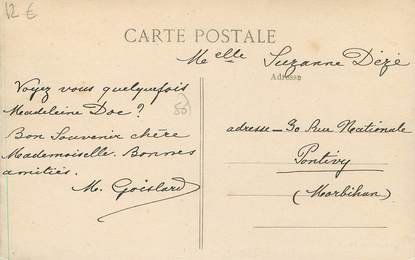 12 €
CARTE POSTALE
Melle Suzanne Dézé
Adresse
Voyez vous quelquefois
Madeleine Doc ?
Bon Souvenir chère
Mademoiselle. Bonnes
amitiés.
M. Goislard
56
adresse _ 30 Rue Nationale
Pontivy
(Morbihan)